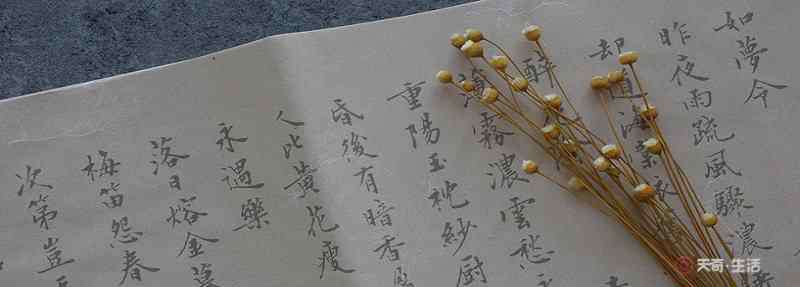 如夢令
昨夜雨疏風驟濃
却道海棠依
醉
薄霧濃雲愁
重陽玉枕紗厨
昏後有暗香
人比黃花瘦
永遇樂
落日熔金暮
梅笛怨春
次第豈
天奇·生活